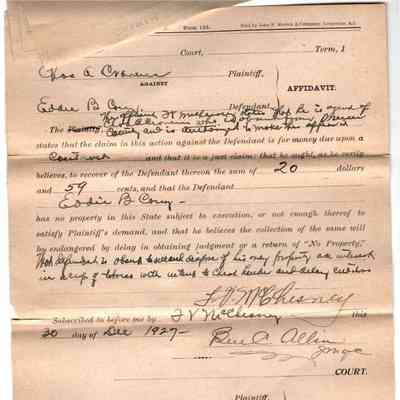 Form 125.
Court, Term, 1
Chas A Plaintiff,
AGAINST AFFIDAVIT.
Eddie B Defendant,
The affiant F V McChesney states that he is agent of
The Plaintiff who is absent from
County and is authorized to make this affidavit
states that the claim in this action against the Defendant is for money due upon a
Contract and that it is a just claim; that he ought, as he verily
believes, to recover of the Defendant thereon the sum of 20 dollars
and 59 cents, and that the Defendant
Eddie B
has no property in this State subject to execution, or not enough thereof to
satisfy Plaintiff's demand, and that he believes the collection of the same will
be endangered by delay in obtaining judgment or a return of "No Property,"
that defendant is about to dispose of his property
in a crop of tobacco with intent to cheat hinder and delay creditors
F. V. McChesney
Subscribed to before me by F V McChesney this
20 day of Dec 1927
Allin
COURT.
Plaintiff,